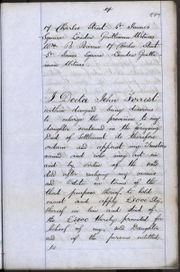 17 Charles Street St James's
Square London Gentleman Witness
Wm B 17 Charles Street
St James Square London Gentle-
man Witness
I Doctor John Forrest
within named being desirous
to enlarge the provision to my
daughter contained in the foregoing
Deed of Settlement do therefore
and appoint my Trustees
named and who may act under
and by virtue of the said
deed after realizing my means
and Estate in terms of the
third purpose thereof to hold
invest and apply £5000 Stg
thereof in lieu and place of
the £3000 thereby provided for
behoof of my said Daughter
and of the persons entitled
to